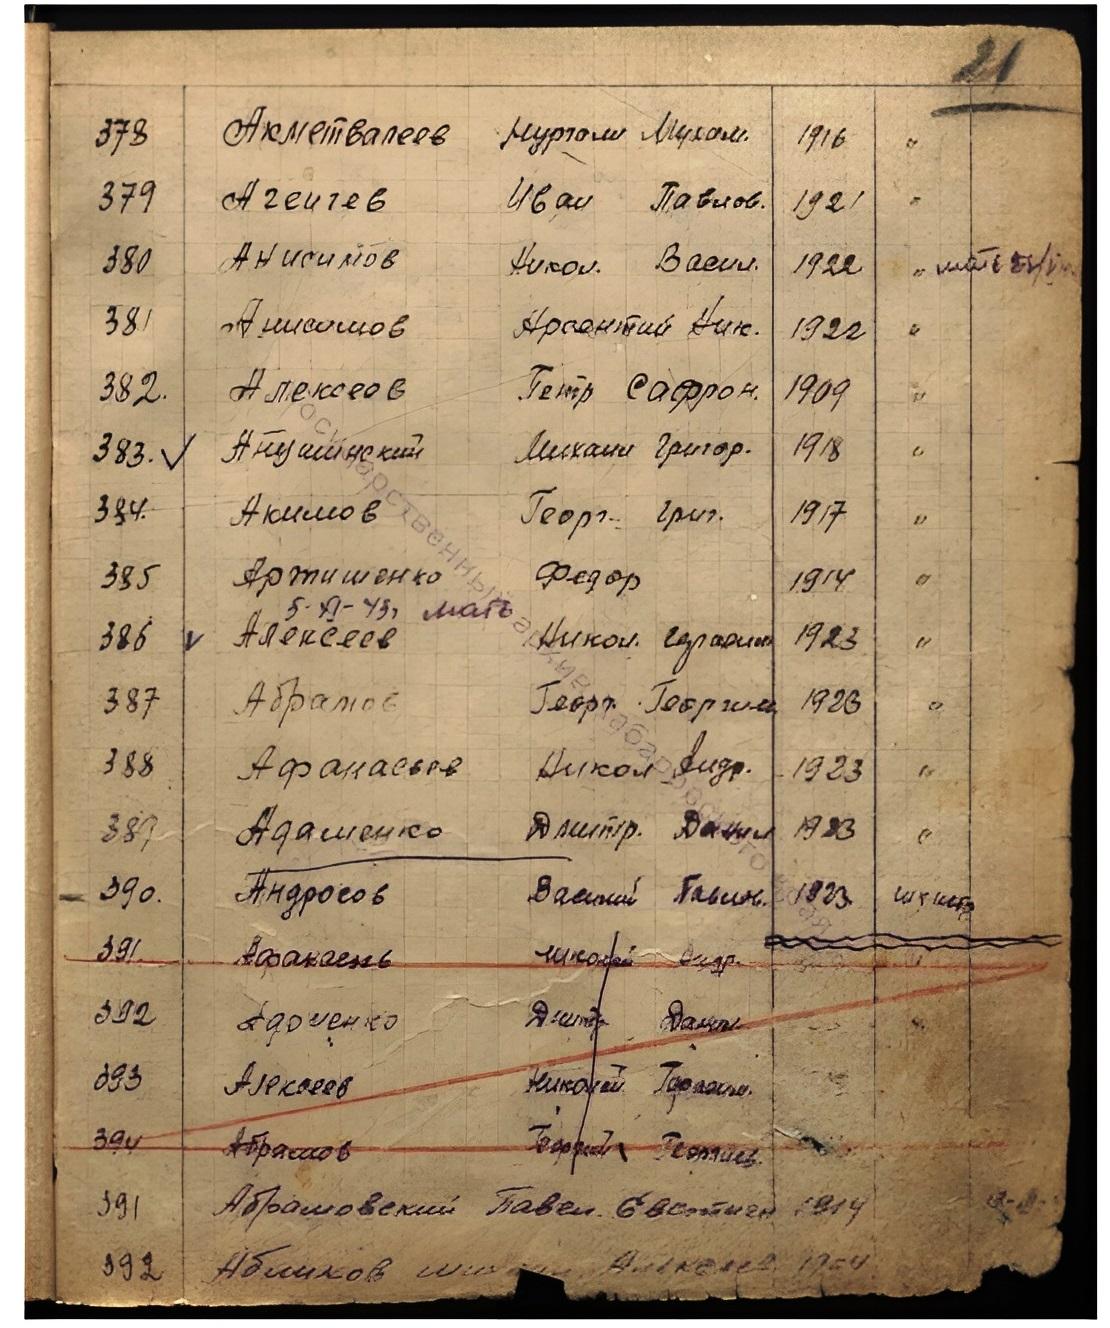 21
378 Ахметвалеев Нургали Мухам. 1916 "
379 Агентев Иван Павлов. 1921 "
380 Анисимов Никол. Васил. 1922 " мать
381 Анисимов Арсентий Ник. 1922 "
382. Алексеев Петр Сафрон. 1909 "
383. ✓ Михаил Григор. 1918 "
384. Акимов Георг. Григ. 1917 "
385 Артишенко Федор 1914 "
5-XI-43. мать
386 v Алексеев Никол. Герасим 1923 "
387 Абрамов Георг. Георгиев 1923 "
388 Афанасьев Никол Андр. 1923 "
389 Адаменко Дмитр. Данил 1923 "
390. Андросов Василий 1923
391. Афанасень Николай Андр.
392 Адоменко Дмитр Данил
393 Алексеев Николай Герасим.
394 Абрамов Георгий Георгиев
391 Абрамовский Павел. Евстиген 1914
392 Абликов Алексеев
Государственный архив Хабаровского края